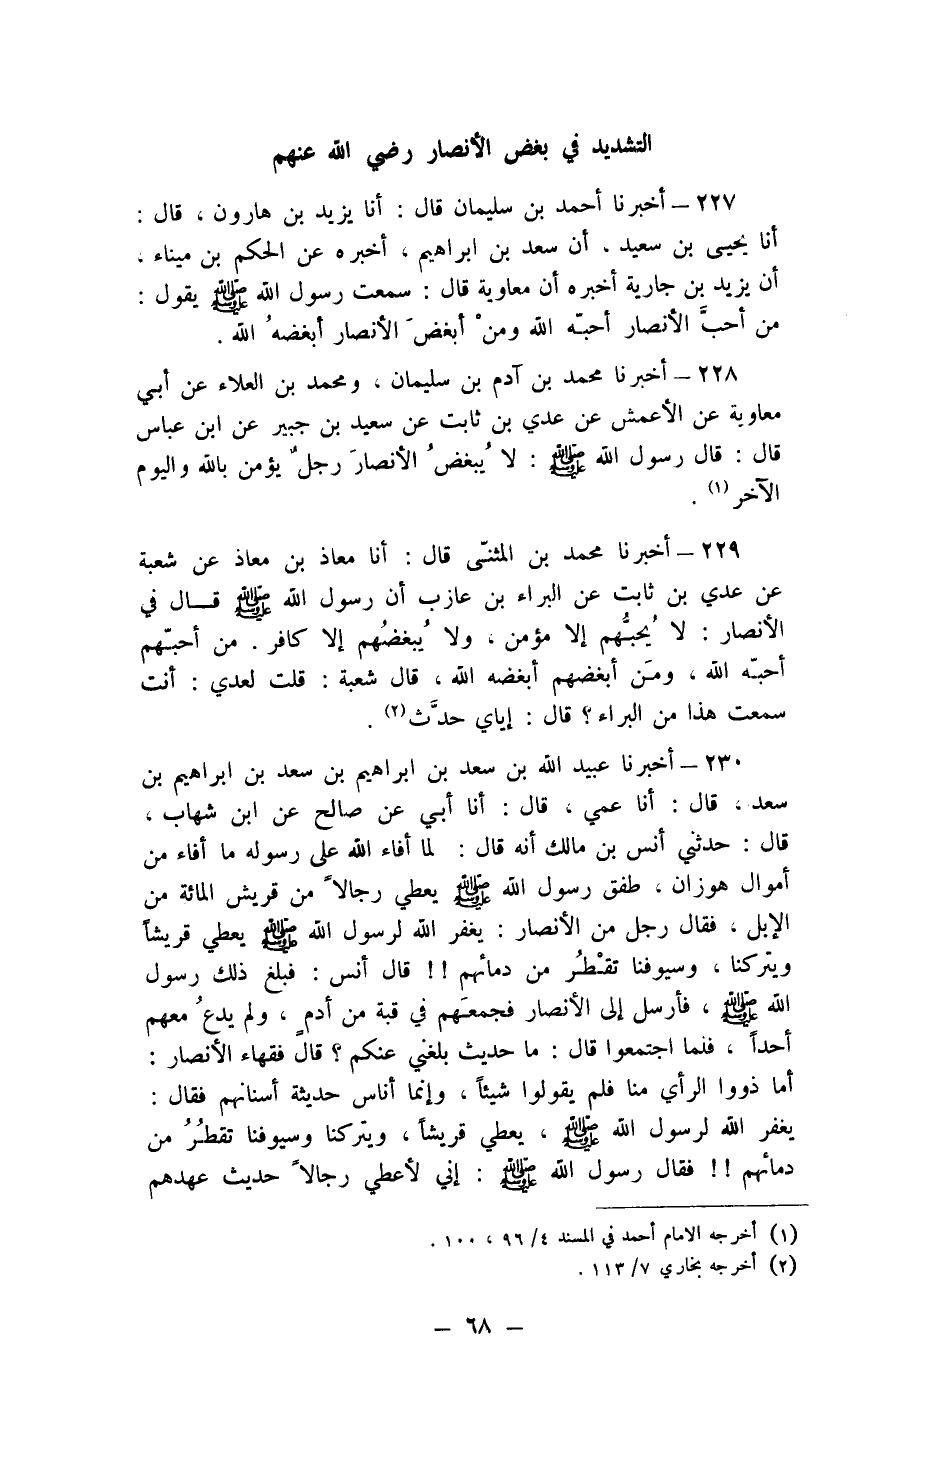 التشديد في بغض الأنصار رضي الله عنهم
٢٢٧ – أخبرنا أحمد بن سليمان قال : أنا يزيد بن هارون ، قال :
أنا يحيى بن سعيد . أن سعد بن ابراهيم ، أخبره عن الحكم بن ميناء ،
أن يزيد بن جارية أخبره أن معاوية قال : سمعت رسول الله ﷺ يقول :
من أحبَّ الأنصار أحبّه الله ومنْ أبغضَ الأنصار أبغضهُ الله .
٢٢٨ – أخبرنا محمد بن آدم بن سليمان ، ومحمد بن العلاء عن أبي
معاوية عن الأعمش عن عدي بن ثابت عن سعيد بن جبير عن ابن عباس
قال : قال رسول الله ﷺ : لا يُبغضُ الأنصارَ رجلٌ يؤمن بالله واليوم
الآخر (١) .
٢٢٩ – أخبرنا محمد بن المثنّى قال : أنا معاذ بن معاذ عن شعبة
عن عدي بن ثابت عن البراء بن عازب أن رسول الله ﷺ قـــال في
الأنصار : لا يُحبُّهم إلا مؤمن ، ولا يُبغضُهم إلا كافر . من أحبّهم
أحبّه الله ، ومَن أبغضهم أبغضه الله ، قال شعبة : قلت لعدي : أنت
سمعت هذا من البراء ؟ قال : إياي حدَّث (٢) .
٢٣٠ – أخبرنا عبيد الله بن سعد بن ابراهيم بن سعد بن ابراهيم بن
سعد ، قال : أنا عمي ، قال : أنا أبي عن صالح عن ابن شهاب ،
قال : حدثني أنس بن مالك أنه قال : لما أفاء الله على رسوله ما أفاء من
أموال هوزان ، طفق رسول الله ﷺ يعطي رجالاً من قريش المائة من
الإبل ، فقال رجل من الأنصار : يغفر الله لرسول الله ﷺ يعطي قريشاً
ويتركنا ، وسيوفنا تقْطُر من دمائهم !! قال أنس : فبلغ ذلك رسول
الله ﷺ ، فأرسل إلى الأنصار فجمعَهم في قبة من أدمٍ ، ولم يدعُ معهم
أحداً ، فلما اجتمعوا قال : ما حديث بلغني عنكم ؟ قال فقهاء الأنصار :
أما ذووا الرأي منا فلم يقولوا شيئاً ، وإنما أناس حديثة أسنانهم فقال :
يغفر الله لرسول الله ﷺ ، يعطي قريشاً ، ويتركنا وسيوفنا تقطُرُ من
دمائهم !! فقال رسول الله ﷺ : إني لأعطي رجالاً حديث عهدهم
(١) أخرجه الامام أحمد في المسند ٤/ ٩٦ ، ١٠٠ .
(٢) أخرجه بخاري ٧/ ١١٣ .
– ٦٨ –